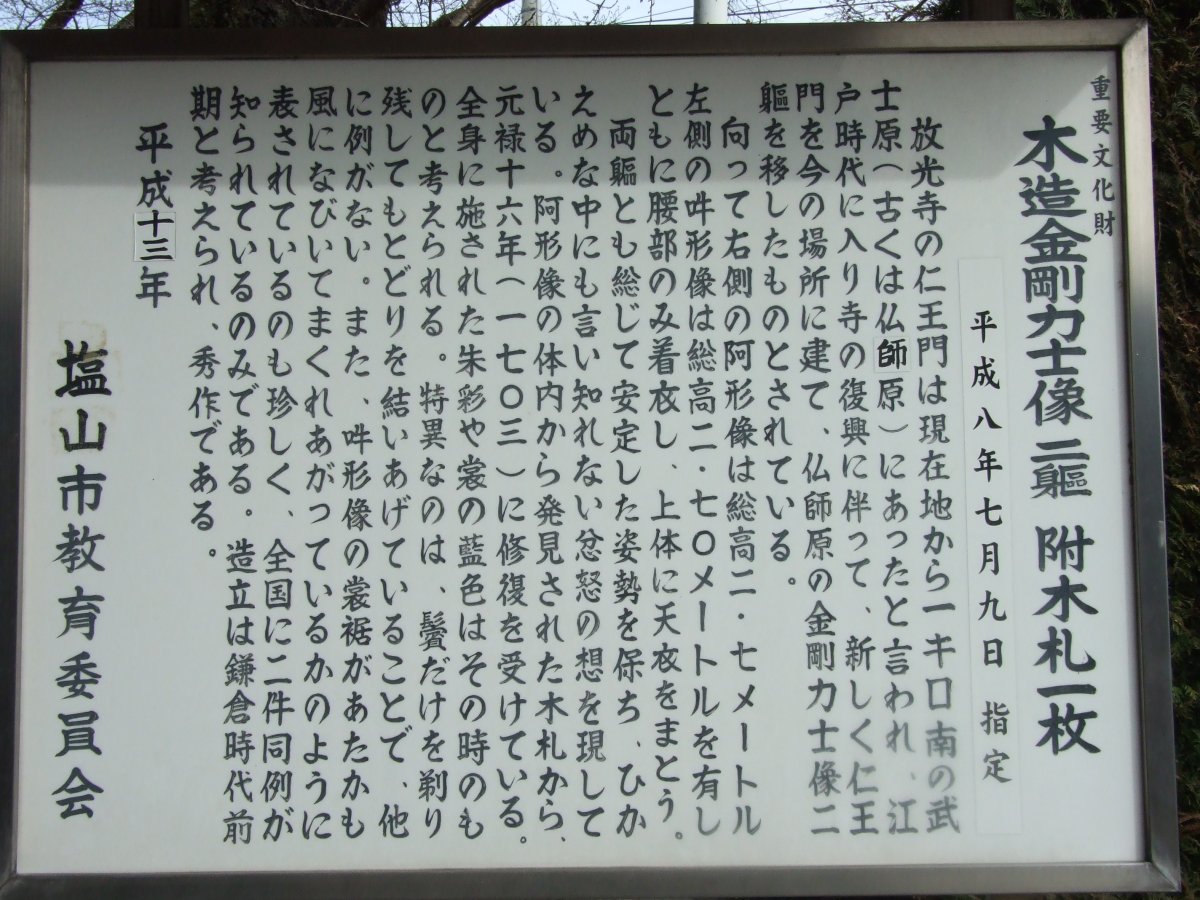 重要文化財
木造金剛力士像 二軀 附木札一枚
平成八年七月九日 指定
放光寺の仁王門は現在地から一キロ南の武
士原(古くは仏師原)にあったと言われ、江
戸時代に入り寺の復興に伴って、新しく仁王
門を今の場所に建て、仏師原の金剛力士像二
軀を移したものとされている。
向って右側の阿形像は総高二・七メートル
左側の吽形像は総高二・七〇メートルを有し
ともに腰部のみ着衣し、上体に天衣をまとう。
両軀とも総じて安定した姿勢を保ち、ひか
えめな中にも言い知れない忿怒の想を現して
いる。阿形像の体内から発見された木札から、
元禄十六年(一七〇三)に修復を受けている。
全身に施された朱彩や裳の藍色はその時のも
のと考えられる。特異なのは、鬢だけを剃り
残してもとどりを結いあげていることで、他
に例がない。また、吽形像の裳裾があたかも
風になびいてまくれあがっているかのように
表されているのも珍しく、全国に二件同例が
知られているのみである。造立は鎌倉時代前
期と考えられ、秀作である。
平成十三年
塩山市教育委員会